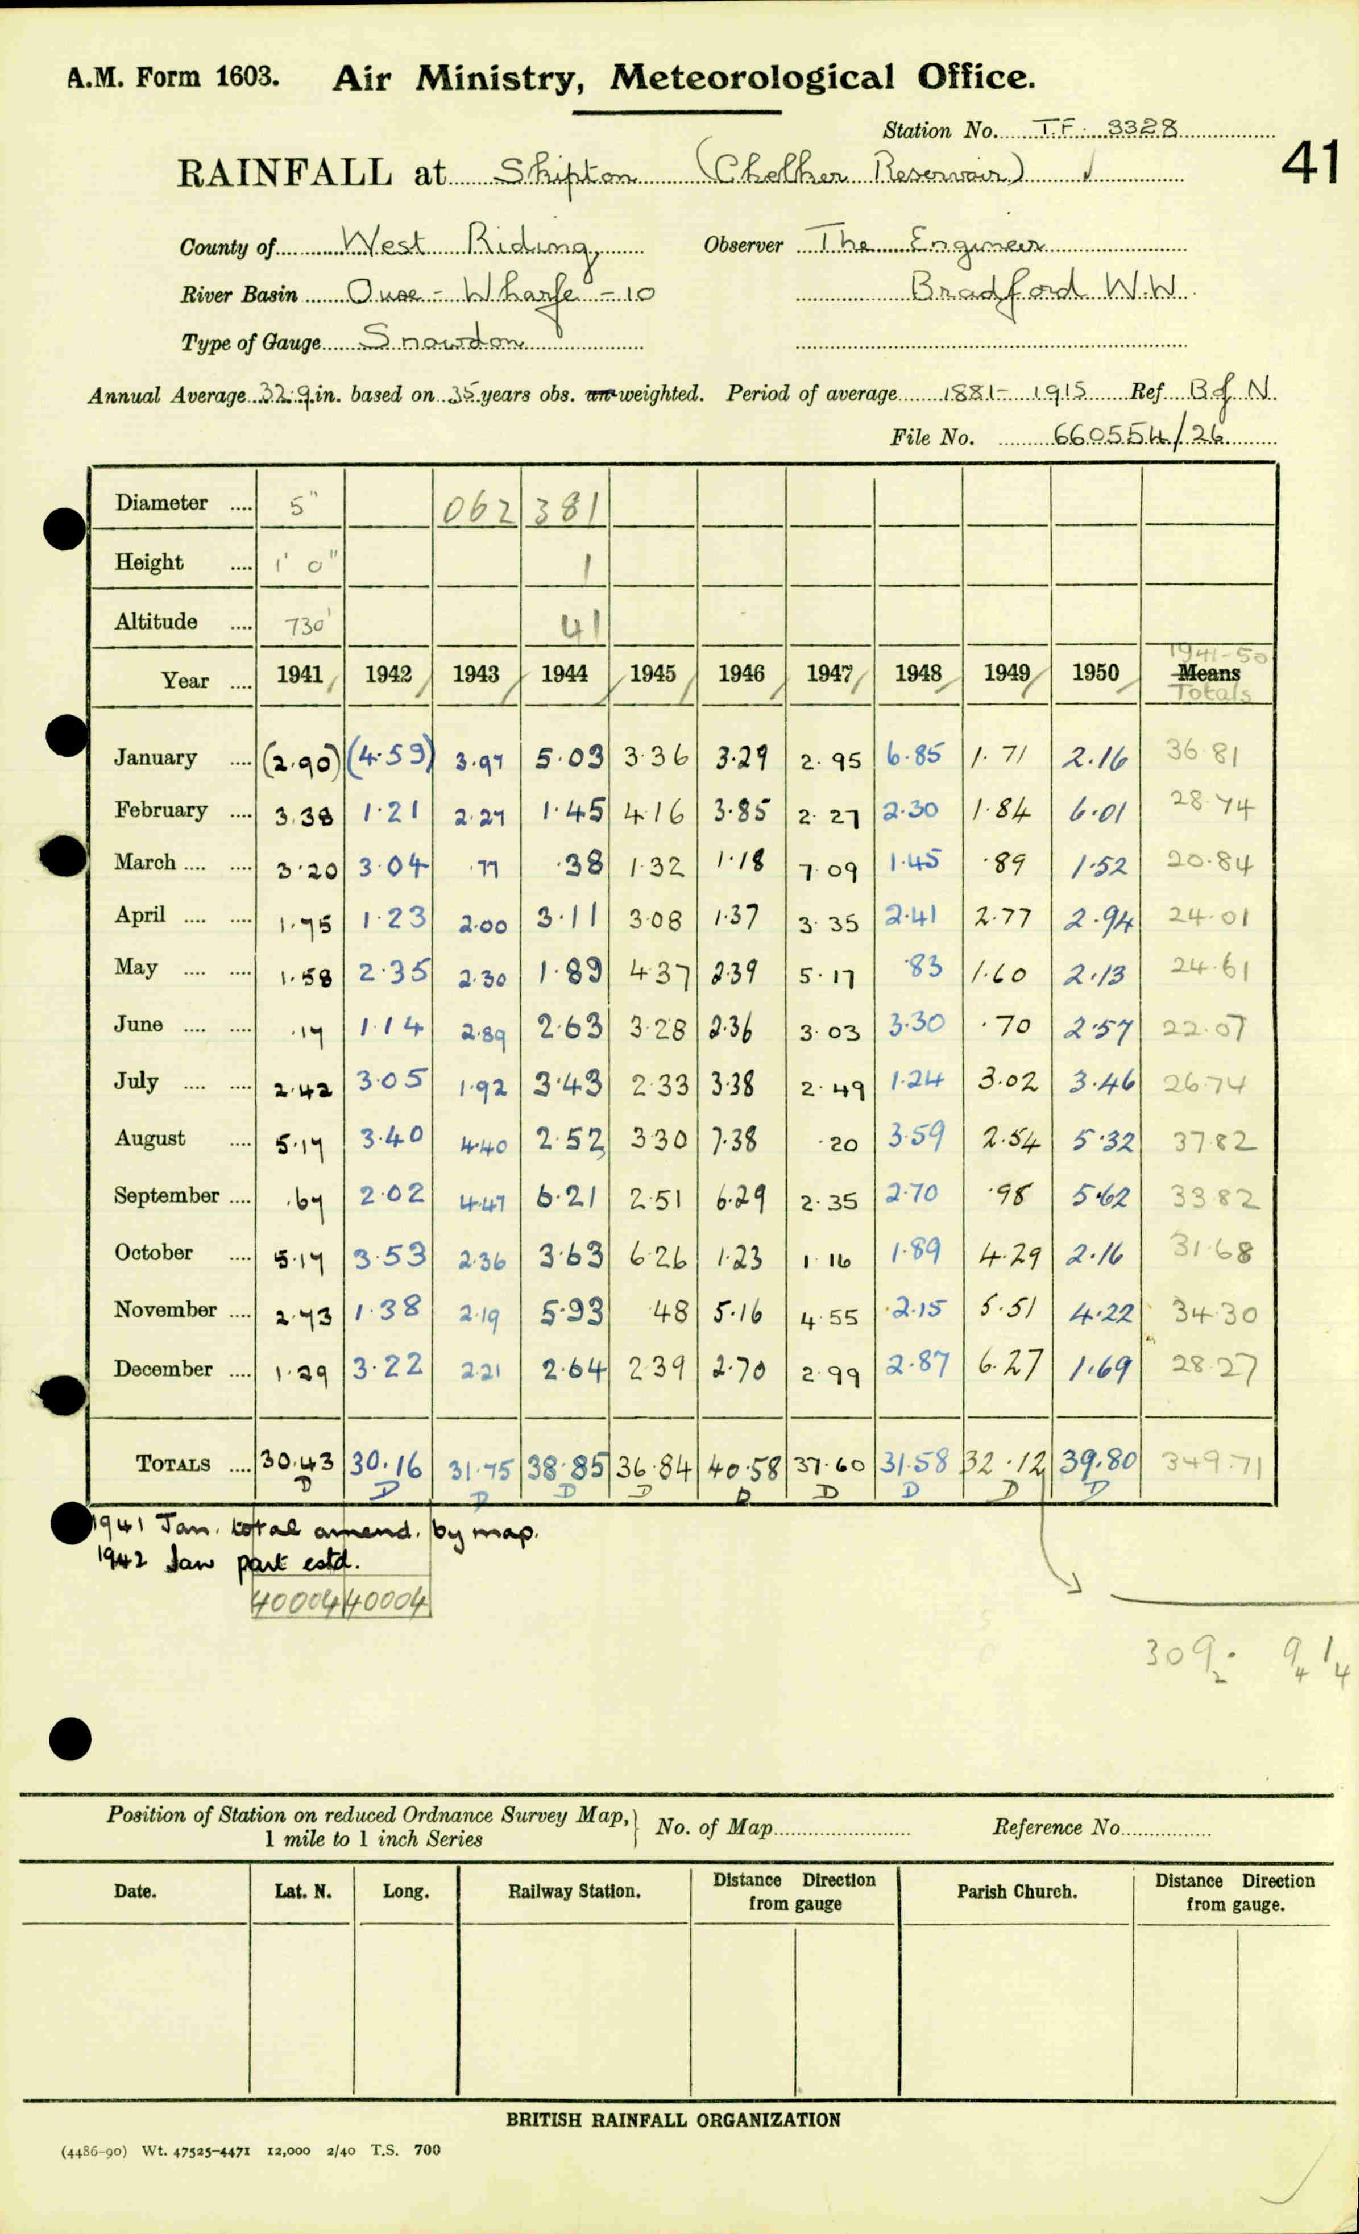 A.M. Form 1603. Air Ministry, Meteorological Office.
Station No. T.F. 3328
41
RAINFALL at Skipton (Chelker Reservoir) ✓
County of West Riding Observer The Engineer
River Basin Ouse - Wharfe - 10 Bradford W.W.
Type of Gauge Snowdon
Annual Average 32.9 in. based on 35 years obs. un weighted. Period of average 1881 - 1915 Ref B of N
File No. 660554/26
Diameter .... 5" 062 381
Height .... 1' 0" 1
Altitude .... 730' 41
1941-50
Year .... 1941 1942 1943 1944 1945 1946 1947 1948 1949 1950 Means
Totals
January .... (2.90) (4.59) 3.97 5.03 3.36 3.29 2.95 6.85 1.71 2.16 36.81
February .... 3.38 1.21 2.27 1.45 4.16 3.85 2.27 2.30 1.84 6.01 28.74
March .... .... 3.20 3.04 .77 .38 1.32 1.18 7.09 1.45 .89 1.52 20.84
April .... .... 1.75 1.23 2.00 3.11 3.08 1.37 3.35 2.41 2.77 2.94 24.01
May .... .... 1.58 2.35 2.30 1.89 4.37 2.39 5.17 .83 1.60 2.13 24.61
June .... .... .17 1.14 2.89 2.63 3.28 2.36 3.03 3.30 .70 2.57 22.07
July .... .... 2.42 3.05 1.92 3.43 2.33 3.38 2.49 1.24 3.02 3.46 26.74
August .... 5.17 3.40 4.40 2.52 3.30 7.38 .20 3.59 2.54 5.32 37.82
September .... .67 2.02 4.47 6.21 2.51 6.29 2.35 2.70 .98 5.62 33.82
October .... 5.17 3.53 2.36 3.63 6.26 1.23 1.16 1.89 4.29 2.16 31.68
November .... 2.73 1.38 2.19 5.93 .48 5.16 4.55 2.15 5.51 4.22 34.30
December .... 1.29 3.22 2.21 2.64 2.39 2.70 2.99 2.87 6.27 1.69 28.27
TOTALS .... 30.43 30.16 31.75 38.85 36.84 40.58 37.60 31.58 32.12 39.80 349.71
D D D D D D D D D D
1941 Jan. total amend. by map.
1942 Jan part estd.
40004 40004
309 2. 9 4 1 4
Position of Station on reduced Ordnance Survey Map, No. of Map Reference No.
1 mile to 1 inch Series
Date. Lat. N. Long. Railway Station. Distance Direction from gauge Parish Church. Distance Direction from gauge.
BRITISH RAINFALL ORGANIZATION
(4486-90) Wt. 47525-4471 12,000 2/40 T.S. 700